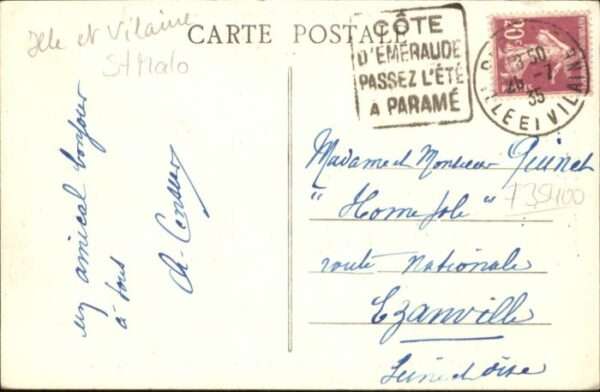 Ille et Vilaine
St Malo
CARTE POSTALE
CÔTE
D'ÉMERAUDE
PASSEZ L'ÉTÉ
A PARAMÉ
20c
3 50
26 -7
35
ILLE ET VILAINE
un amical bonjour
à tous
Madame et Monsieur Quinet
"Home Jole"
route Nationale
Ezanville
Seine et Oise